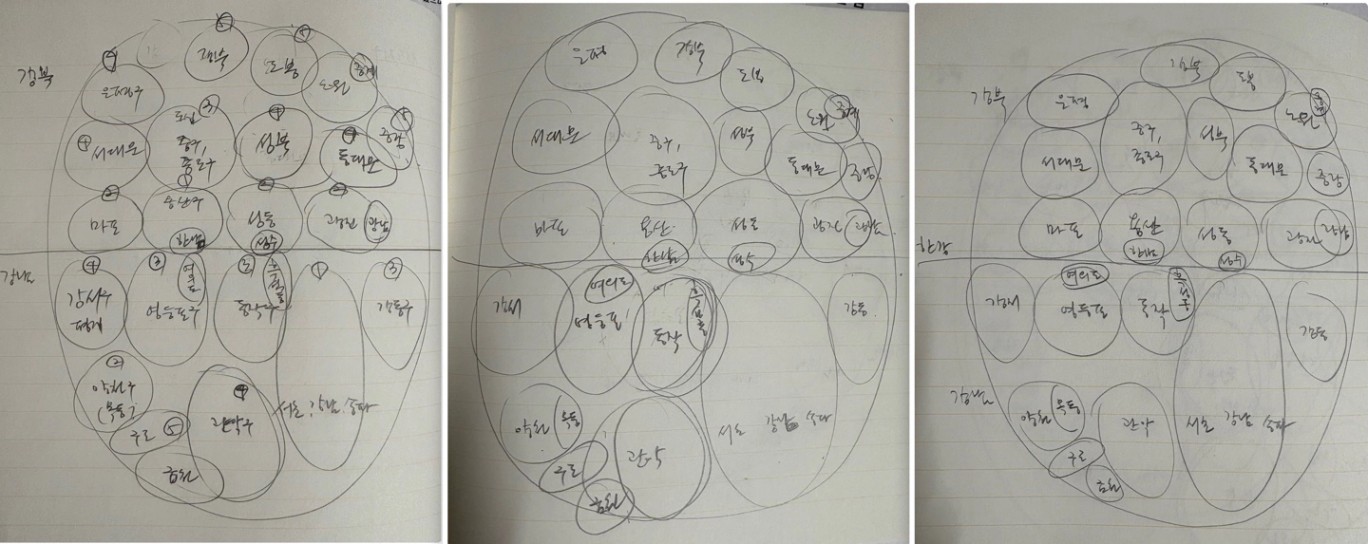 강북
⑤
강북
⑤
도봉
노원
중계
④
은평구
③
도심
중구,
종로구
④
성북
⑤
중랑
④
서대문
④
동대문
②
마포
①
용산구
한남
②
성동
성수
③
광진
광남
강남
④
강서구
③
영등포구
②
동작구
흑석동
①
서초, 강남, 송파
③
강동구
②
양천구
(목동)
구로 ⑤
금천
④
관악구
은평
강북
도봉
노원
중계
서대문
중구,
종로구
성북
동대문
중랑
마포
용산
한남
성동
성수
광진
광남
강서
여의도
영등포
동작
흑석동
강동
양천
목동
구로
금천
관악
서초 강남 송파
강북
강북
도봉
노원
은평
중구,
종로구
성북
동대문
서대문
중랑
마포
용산
한남
성동
성수
광진
광남
한강
강서
여의도
영등포
동작
흑석동
강동
강남
양천
목동
구로
금천
관악
서초 강남 송파